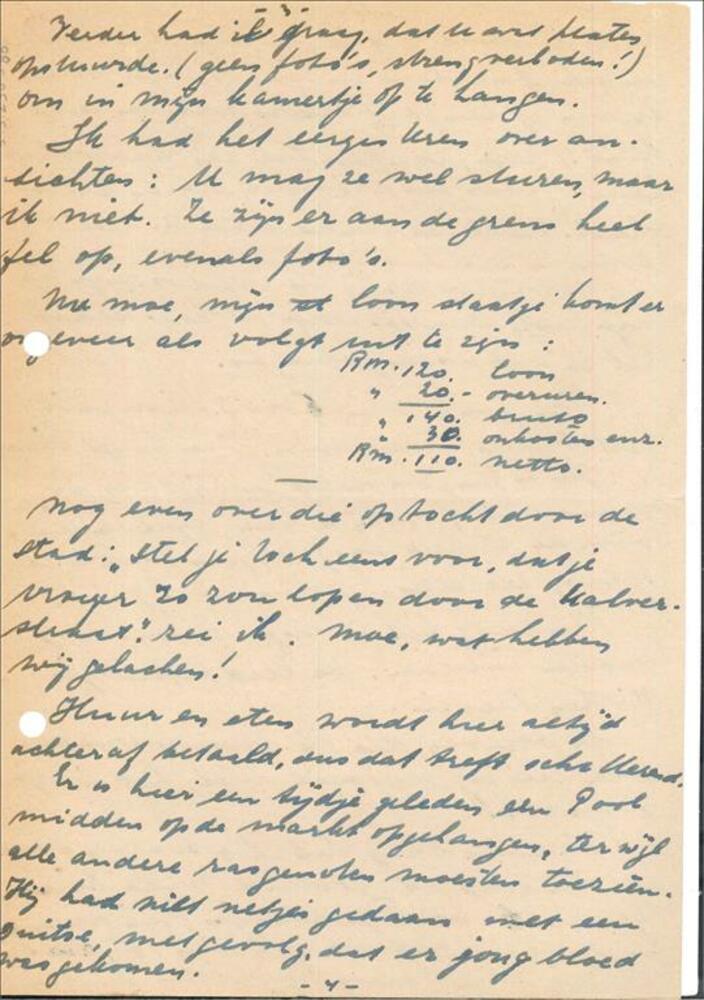 Verder had ik graag, dat U wat platen
opstuurde. (geen foto's, streng verboden!)
om in mijn kamertje op te hangen.
Ik had het eergisteren over an-
sichten: U mag ze wel sturen, maar
ik niet. Ze zijn er aan de grens heel
fel op, evenals foto's.
Nu moe, mijn loon staatje komt er
ongeveer als volgt uit te zien:
Rm. 120. loon
" 20.- overuren.
" 140. bruto
" 30. onkosten enz.
Rm. 110. netto.
Nog even over die optocht door de
stad: "Stel je toch eens voor, dat je
vroeger zo zou lopen door de Kalver-
straat" zei ik. Moe, wat hebben
wij gelachen!
Huur en eten wordt hier altijd
achteraf betaald, dus dat treft schitterend.
Er is hier een tijdje geleden een Pool
midden op de markt opgehangen, terwijl
alle andere rasgenoten moesten toezien.
Hij had niet netjes gedaan met een
Duitse, met gevolg, dat er jong bloed
was gekomen.
- 4 -